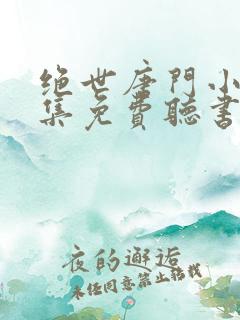 绝世唐門小
集免費聽書
夜的邂逅
未经同意禁止转载